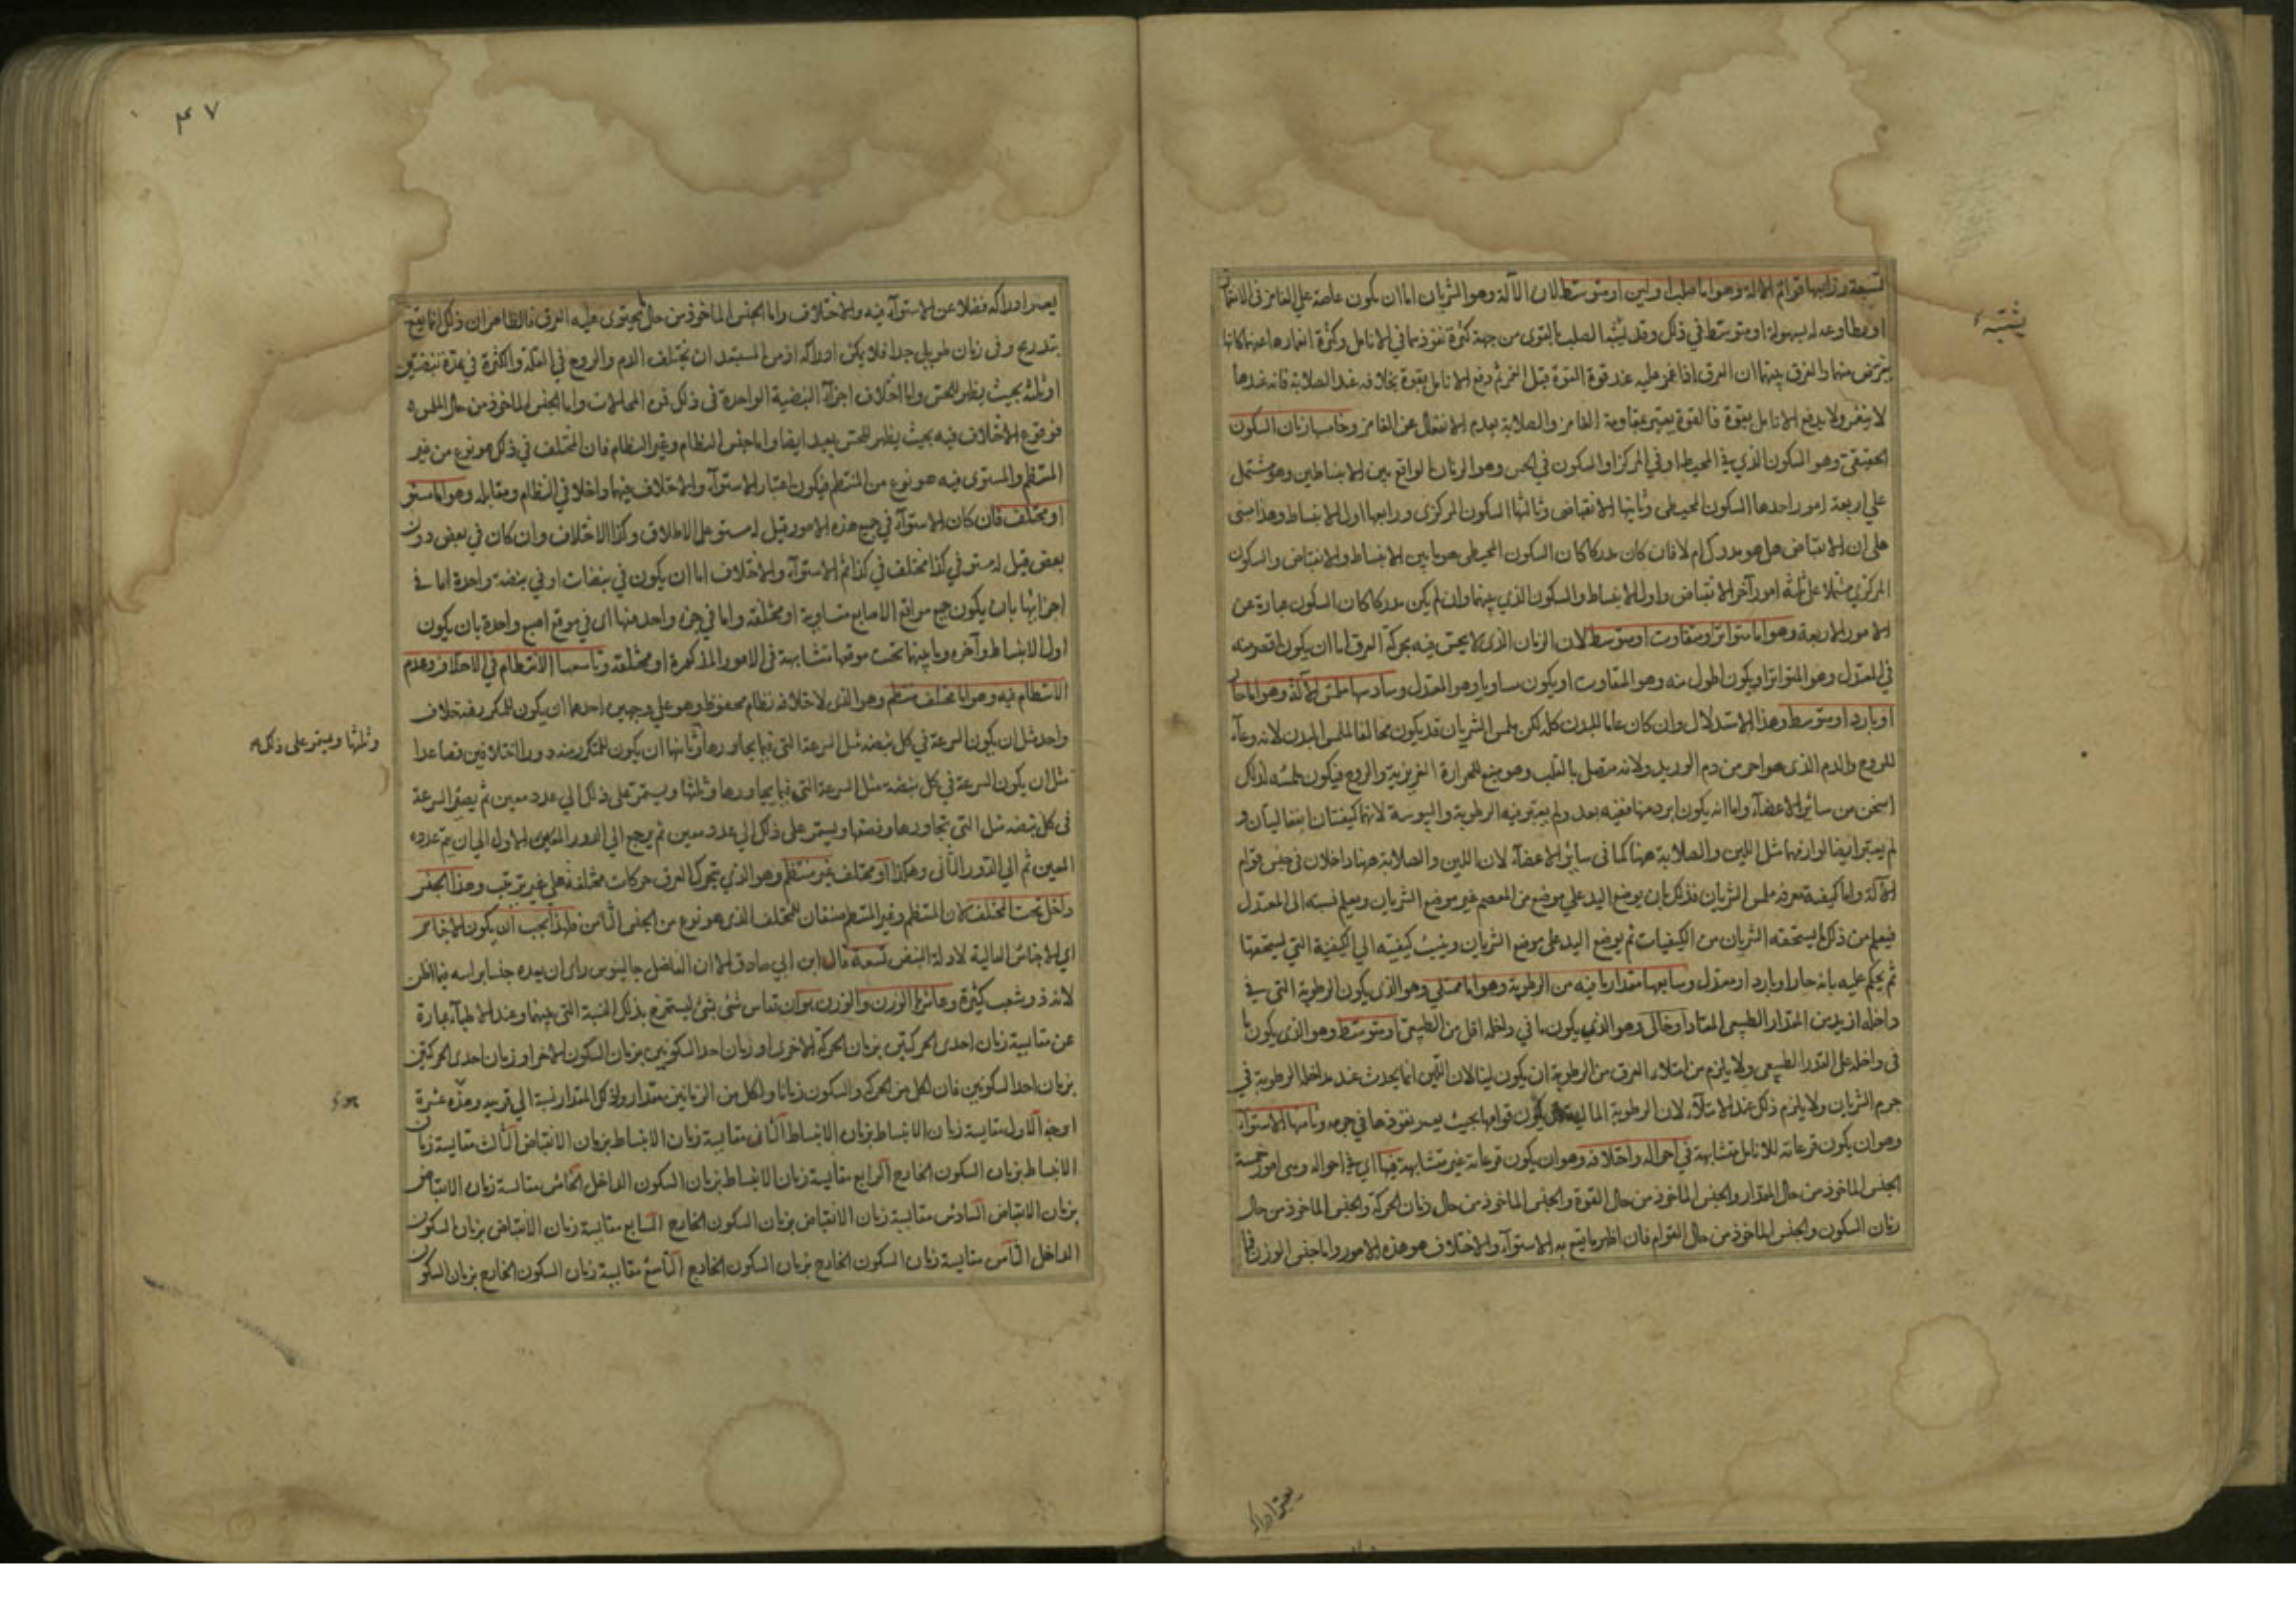 ورابعها قوام الالة وهو اما صلب او لين او متوسط لان الآلة وهو الشريان اما ان يكون عاصية على الغامز في الانغماز
او مطاوعة له بسهولة او متوسط في ذلك وقد يشتبه الصلب بالقوى من جهة كثرة نفوذهما في الانامل وكثرة انغمازها عنهما كانها
منهما والفرق بينهما ان العرق اذا غمز عليه عند قوة القوة قبل الغمز ثم دفع الانامل بقوة بخلافه عند الصلابة فانه عندها
لا ينغمز ولا يدفع الانامل بقوة فالقوة يعتبر بمقاومة الغامز والصلابة بعدم الانفعال عن الغامز وخامسها زمان السكون
الحقيقي وهو السكون الذي في المحيط او في المركز او السكون في الحس وهو الزمان الواقع بين الانبساطين وهو مشتمل
على اربعة امور احدها السكون المحيطي وثانيها الانقباض وثالثها السكون المركزي ورابعها اول الانبساط وهذا مبنى
على ان الانقباض هل هو مدرك ام لا فان كان مدركا كان السكون المحيطى هو ما بين الانبساط والانقباض والسكون
المركزي مشتملا على ثلثة امور آخر الانقباض واول الانبساط والسكون الذي بينهما وان لم يكن مدركا كان السكون عبارة عن
الامور الاربعة وهو اما متواتر او متفاوت او متوسط لان الزمان الذي لا يحس فيه بحركة العرق اما ان يكون اقصر منه
في المعتدل وهو المتواتر او يكون اطول منه وهو المتفاوت او يكون مساويا وهو المعتدل وسادسها ملمس الآلة وهو اما حار
او بارد او متوسط وهذا الاستدلال وان كان عاما للبدن كله لكن ملمس الشريان قد يكون مخالفا لملمس البدن لانه وعاء
للروح والدم الذى هو احر من دم الوريد ولانه متصل بالقلب وهو منبع للحرارة الغريزية والروح فيكون ملمسه لذلك
اسخن من سائر الاعضاء واما انه يكون ابرد منها ففيه بعد ولم يعتبر فيه الرطوبة واليبوسة لانهما كيفيتان انفعاليتان و
لم يعتبر ايضا لوازمهما مثل اللين والصلابة ههنا كما في سائر الاعضاء لان اللين والصلابة ههنا داخلان في جنس قوام
الآلة واما كيفية تعرف ملمس الشريان فذلك بان يوضع اليد على موضع من المعصم غير موضع الشريان ويعلم نسبته الى المعتدل
فيعلم من ذلك ما يستحقه الشريان من الكيفيات ثم يوضع اليد على موضع الشريان وينسب كيفيته الى الكيفية التي يستحقها
ثم يحكم عليه بانه حار او بارد او معتدل وسابعها مقدار ما فيه من الرطوبة وهو اما ممتلي وهو الذى يكون الرطوبة التي في
داخله ازيد من المقدار الطبيعي المعتاد او خالى وهو الذي يكون ما في داخله اقل من الطبيعي او متوسط وهو الذي يكون ما
في داخله على القدر الطبيعي ولا يلزم من امتلاء العرق من الرطوبة ان يكون لينا لان اللين انما يحدث عند مداخلة الرطوبة في
جرم الشريان ولا يلزم ذلك عند الامتلاء لان الرطوبة المالئة يكون قوامها بحيث يعسر نفوذها في جرمه وثامنها الاستواء
وهو ان يكون قرعاته للانامل متشابهة في احواله واختلافه وهو ان يكون قرعاته غير متشابهة فيها اي في احواله وهي امور خمسة
الجنس الماخوذ من حال المقدار والجنس الماخوذ من حال القوة والجنس الماخوذ من حال زمان الحركة والجنس الماخوذ من حال
زمان السكون والجنس الماخوذ من حال القوام فان اظهر ما يقع به الاستواء والاختلاف هو هذه الامور واما جنس الوزن فما
يشتبه
يعسر ادراكه
٤٧
يعسر ادراكه فضلا عن الاستواء فيه والاختلاف واما الجنس الماخوذ من حال ما يحتوى عليه العرق فالظاهر ان ذلك انما يقع
بتدريج وفي زمان طويل جدا فلا يمكن ادراكه اذ من المستبعد ان يختلف الدم والروح في القلة والكثرة في مدة نبضتين
او ثلثة بحيث يظهر للحس واما اختلاف اجزاء النبضة الواحدة في ذلك فمن المحالات واما الجنس الماخوذ من حال الملمس
فوقوع الاختلاف فيه بحيث يظهر للحس بعيد ايضا واما جنس النظام وغير النظام فان المختلف في ذلك هو نوع من غير
المنتظم والمستوى فيه هو نوع من المنتظم فيكون اعتبار الاستواء والاختلاف فيهما داخلا في النظام ومقابله وهو اما مستو
او مختلف فان كان الاستواء في جميع هذه الامور قيل له مستو على الاطلاق وكذا الاختلاف وان كان في بعض دون
بعض قيل له مستو في كذا مختلف في كذا ثم الاستواء والاختلاف اما ان يكون في نبضات او في نبضة واحدة اما في
اجزائها بان يكون جميع مواقع الاصابع متساوية او مختلفة واما في جزء واحد منها اى في موقع اصبع واحدة بان يكون
اول الانبساط وآخره وما بينهما تحت موقعها متشابهة في الامور المذكورة او مختلفة وتاسعها الانتظام في الاختلاف وعدم
الانتظام فيه وهو اما مختلف منتظم وهو الذى لاختلافه نظام محفوظ وهو على وجهين احدهما ان يكون للمكرر فيه خلاف
واحد مثل ان يكون السرعة في كل نبضة مثل السرعة التي فيما يجاورها وثانيها ان يكون للمتكرر منه دور اختلافين فصاعدا
مثل ان يكون السرعة في كل نبضة مثل السرعة التي فيما يجاورها وثلثها ويستمر على ذلك الى عدد معين ثم يصير السرعة
في كل نبضة مثل التي تجاورها ونصفها ويستمر على ذلك الى عدد معين ثم يرجع الى الدور المعين الاول الى ان يتم عدده
المعين ثم الى الدور الثاني وهكذا او مختلف غير منتظم وهو الذي يتحرك العرق حركات مختلفة على غير ترتيب وهذا الجنس
داخل تحت المختلف لان المنتظم وغير المنتظم صنفان للمختلف الذى هو نوع من الجنس الثامن فلهذا يجب ان يكون الاجناس
اي الاجناس العالية لادلة النبض تسعة قال ابن ابي صادق الا ان الفاضل جالينوس راى ان يعده جنسا براسه فيما اظن
لانه ذو شعب كثيرة وعاشرها الوزن والوزن هو ان تقاس شئ بشئ ليستخرج بذلك النسبة التي بينهما وعند الاطباء عبارة
عن مقايسة زمان احدى الحركتين بزمان الحركة الاخرى او زمان احد السكونين بزمان السكون الاخر او زمان احدى الحركتين
بزمان احد السكونين فان لكل من الحركة والسكون زمانا ولكل من الزمانين مقدار ولذلك المقدار نسبة الى قرينه وهذه عشرة
اوجه الاول مقايسة زمان الانبساط بزمان الانبساط الثاني مقايسة زمان الانبساط بزمان الانقباض الثالث مقايسة زمان
الانبساط بزمان السكون الخارج الرابع مقايسة زمان الانبساط بزمان السكون الداخل الخامس مقايسة زمان الانقباض
بزمان الانقباض السادس مقايسة زمان الانقباض بزمان السكون الخارج السابع مقايسة زمان الانقباض بزمان السكون
الداخل الثامن مقايسة زمان السكون الخارج بزمان السكون الخارج التاسع مقايسة زمان السكون الخارج بزمان السكون
وثلثها ويستمر على ذلك